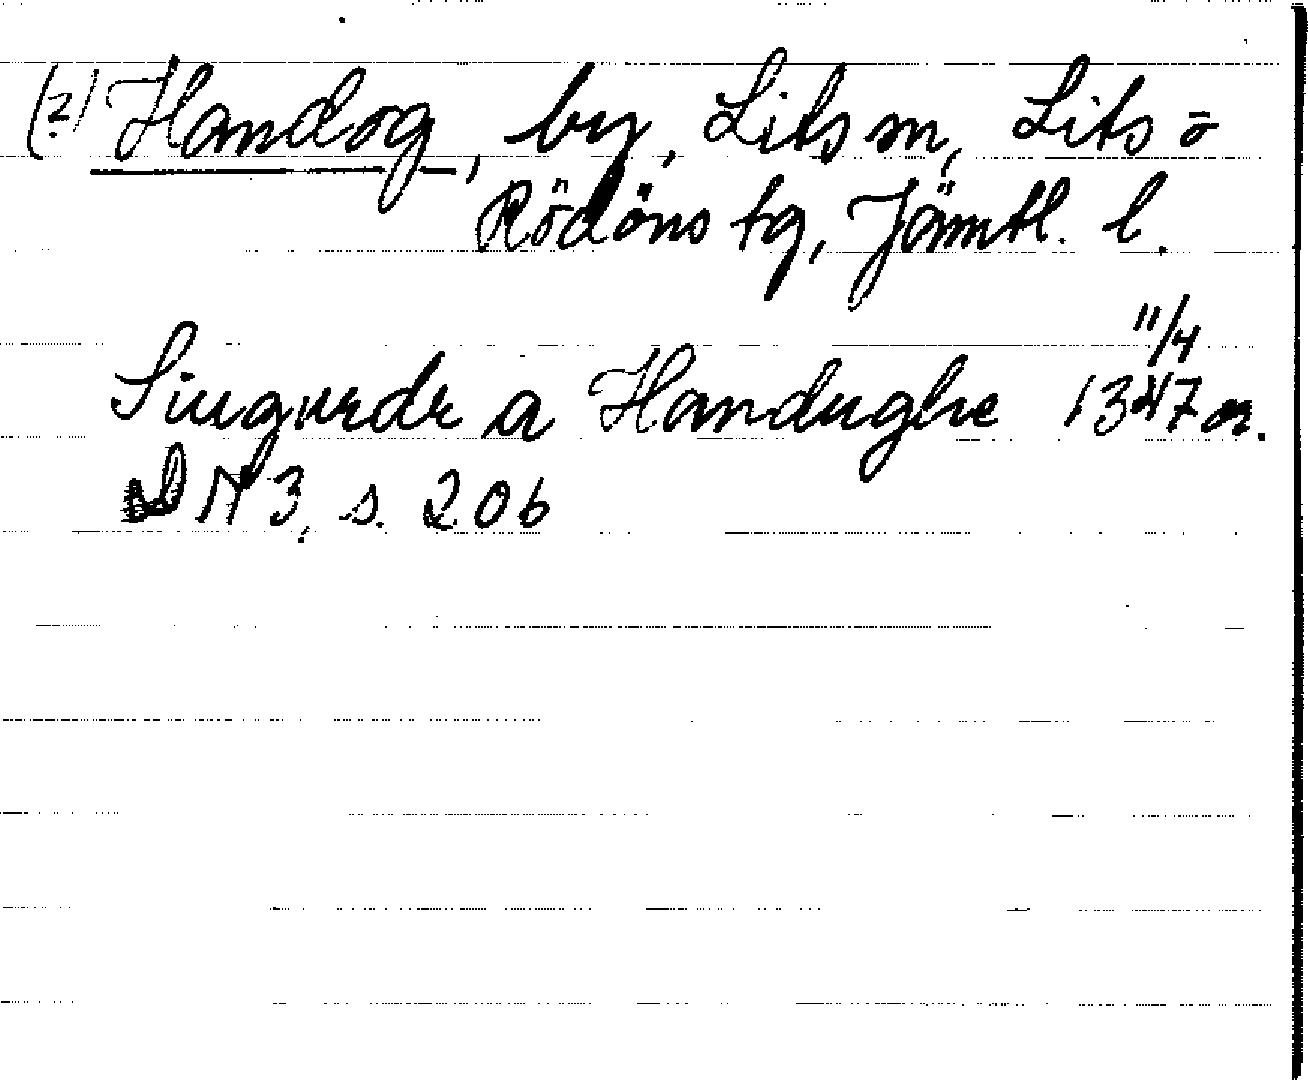 (?) Handog, by, Lits sn, Lits o
Rödöns tg, Jämtl. l.
Siugurdr a Handughe 1347 11/4 or.
DN 3, s. 206